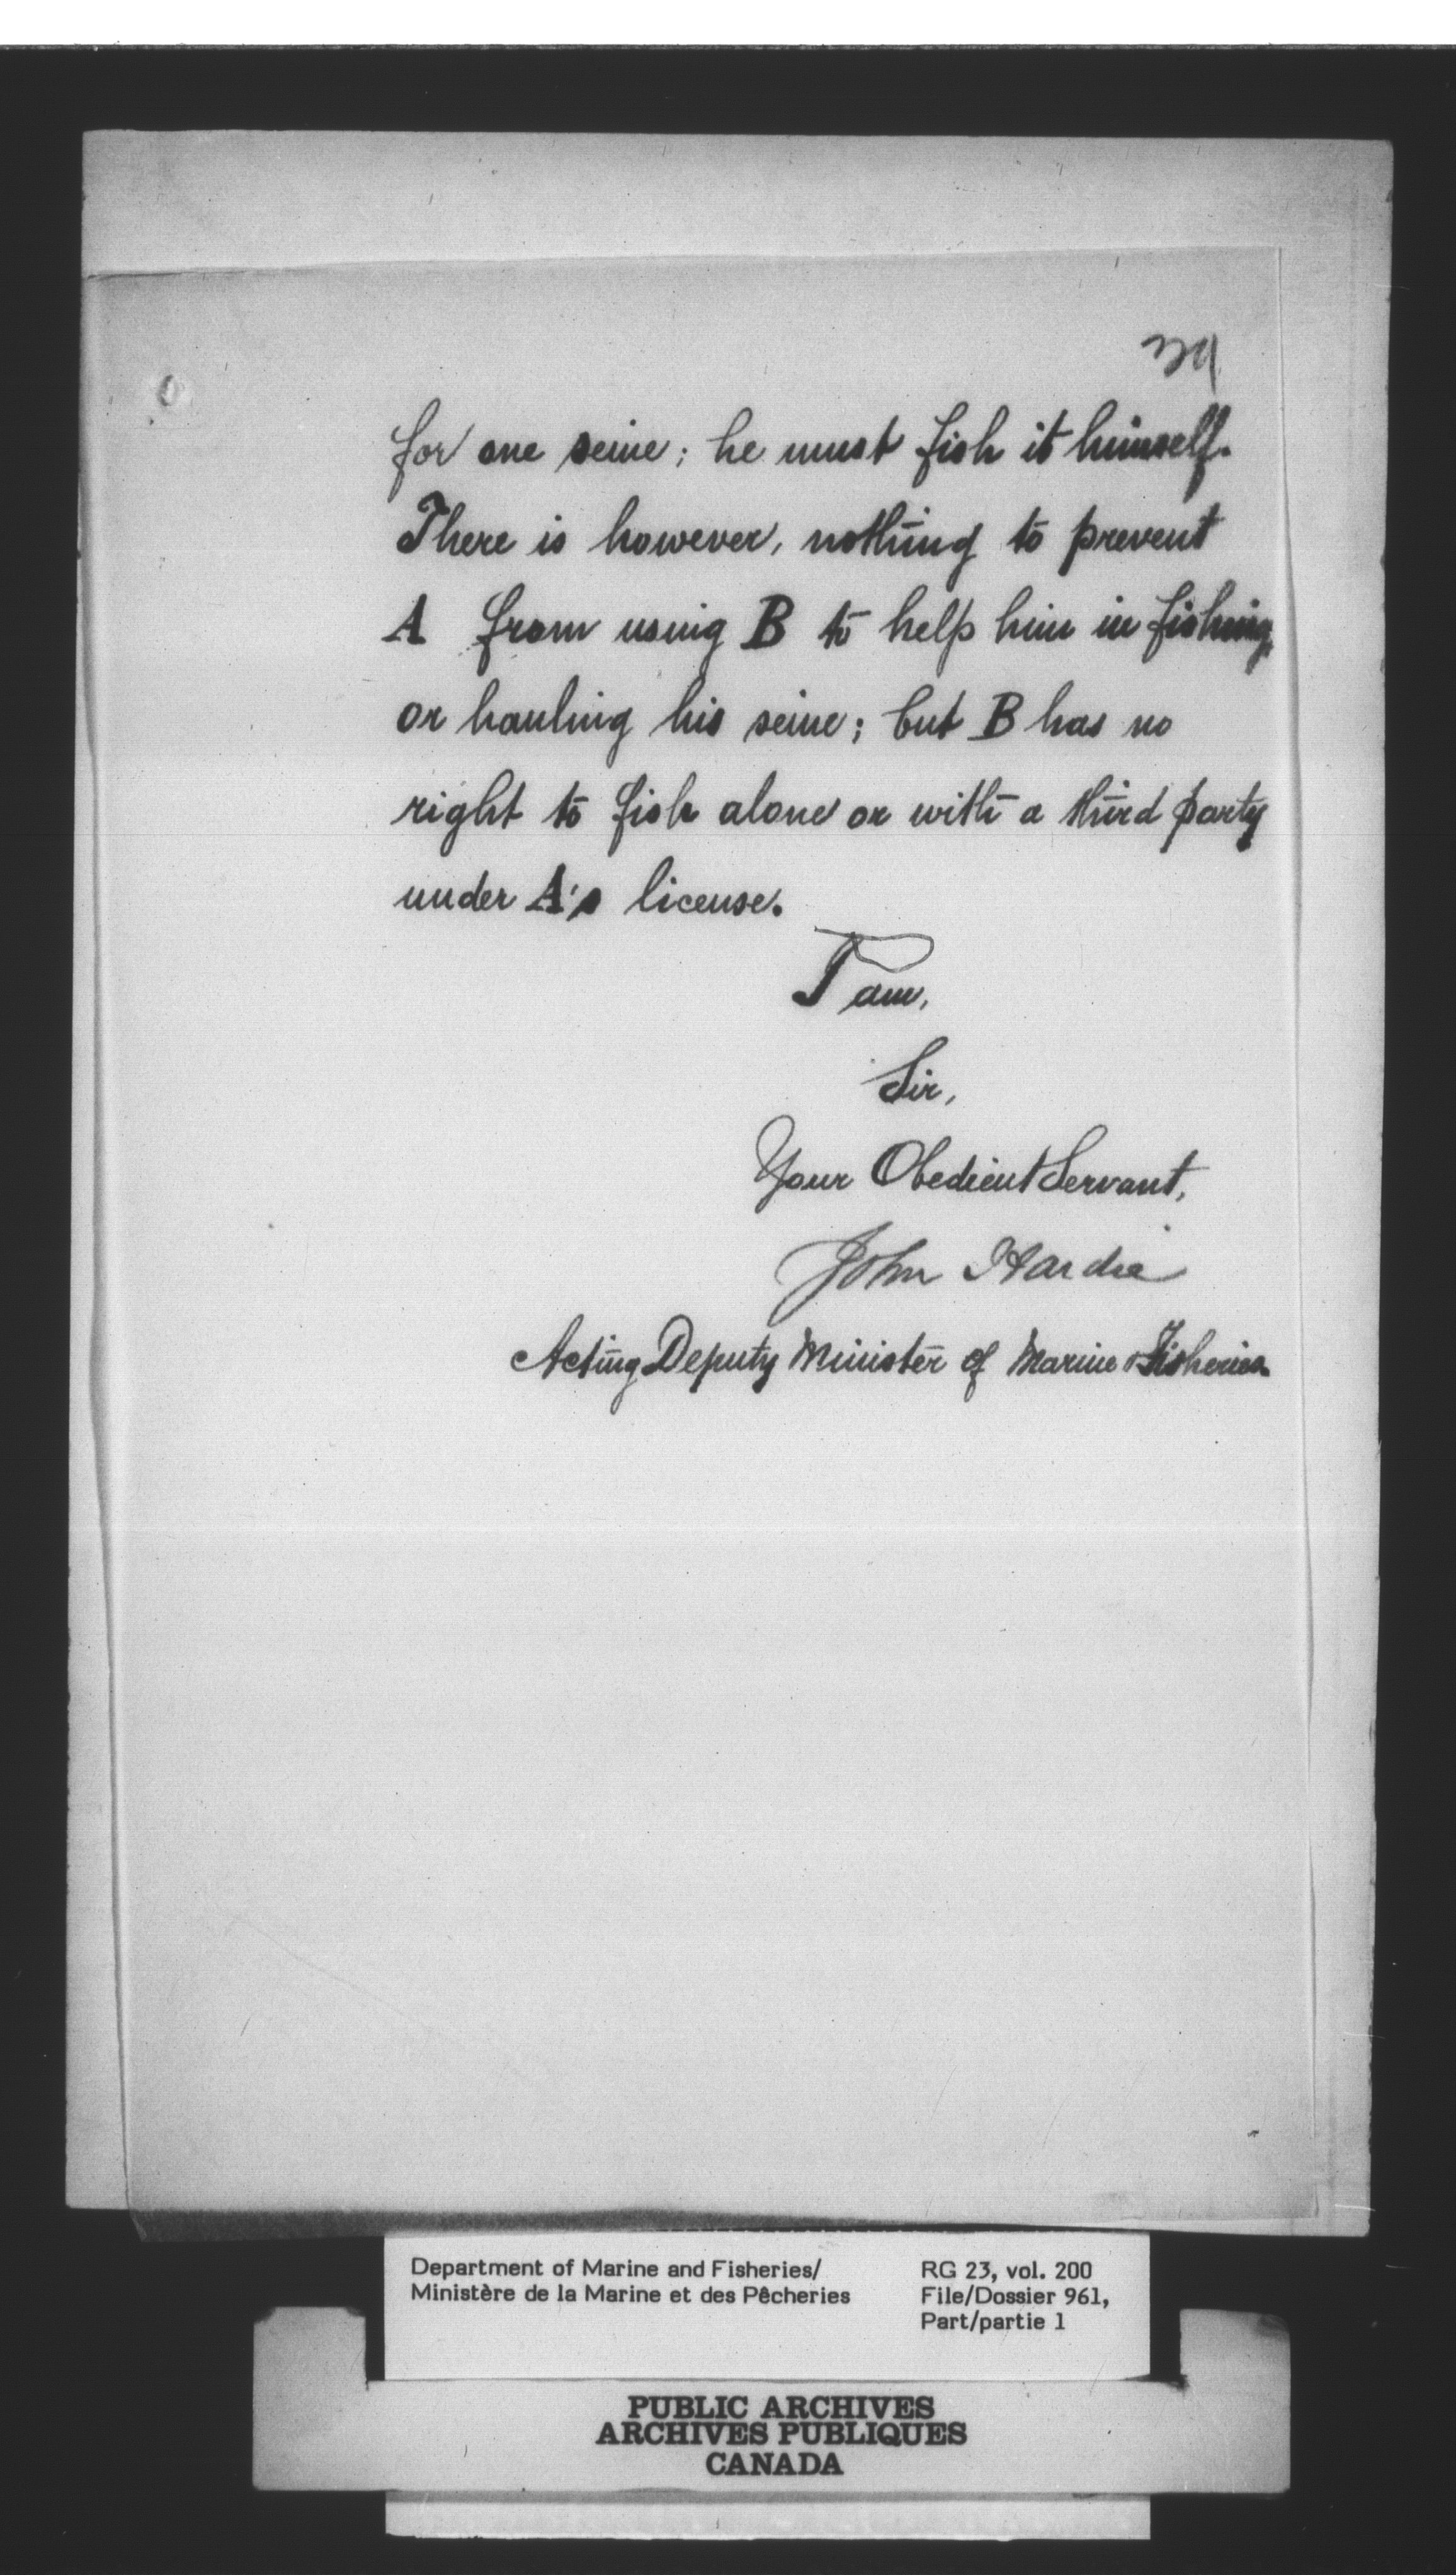 for one seine; he must fish it himself.
There is however, nothing to prevent
A from using B to help him in fishing,
or hauling his seine; but B has no
right to fish alone or with a third party
under A's license.
I am,
Sir,
Your Obedient Servant,
John Hardie
Acting Deputy Minister of Marine & Fisheries.
Department of Marine and Fisheries/
Ministère de la Marine et des Pêcheries
RG 23, vol. 200
File/Dossier 961,
Part/partie 1
PUBLIC ARCHIVES
ARCHIVES PUBLIQUES
CANADA